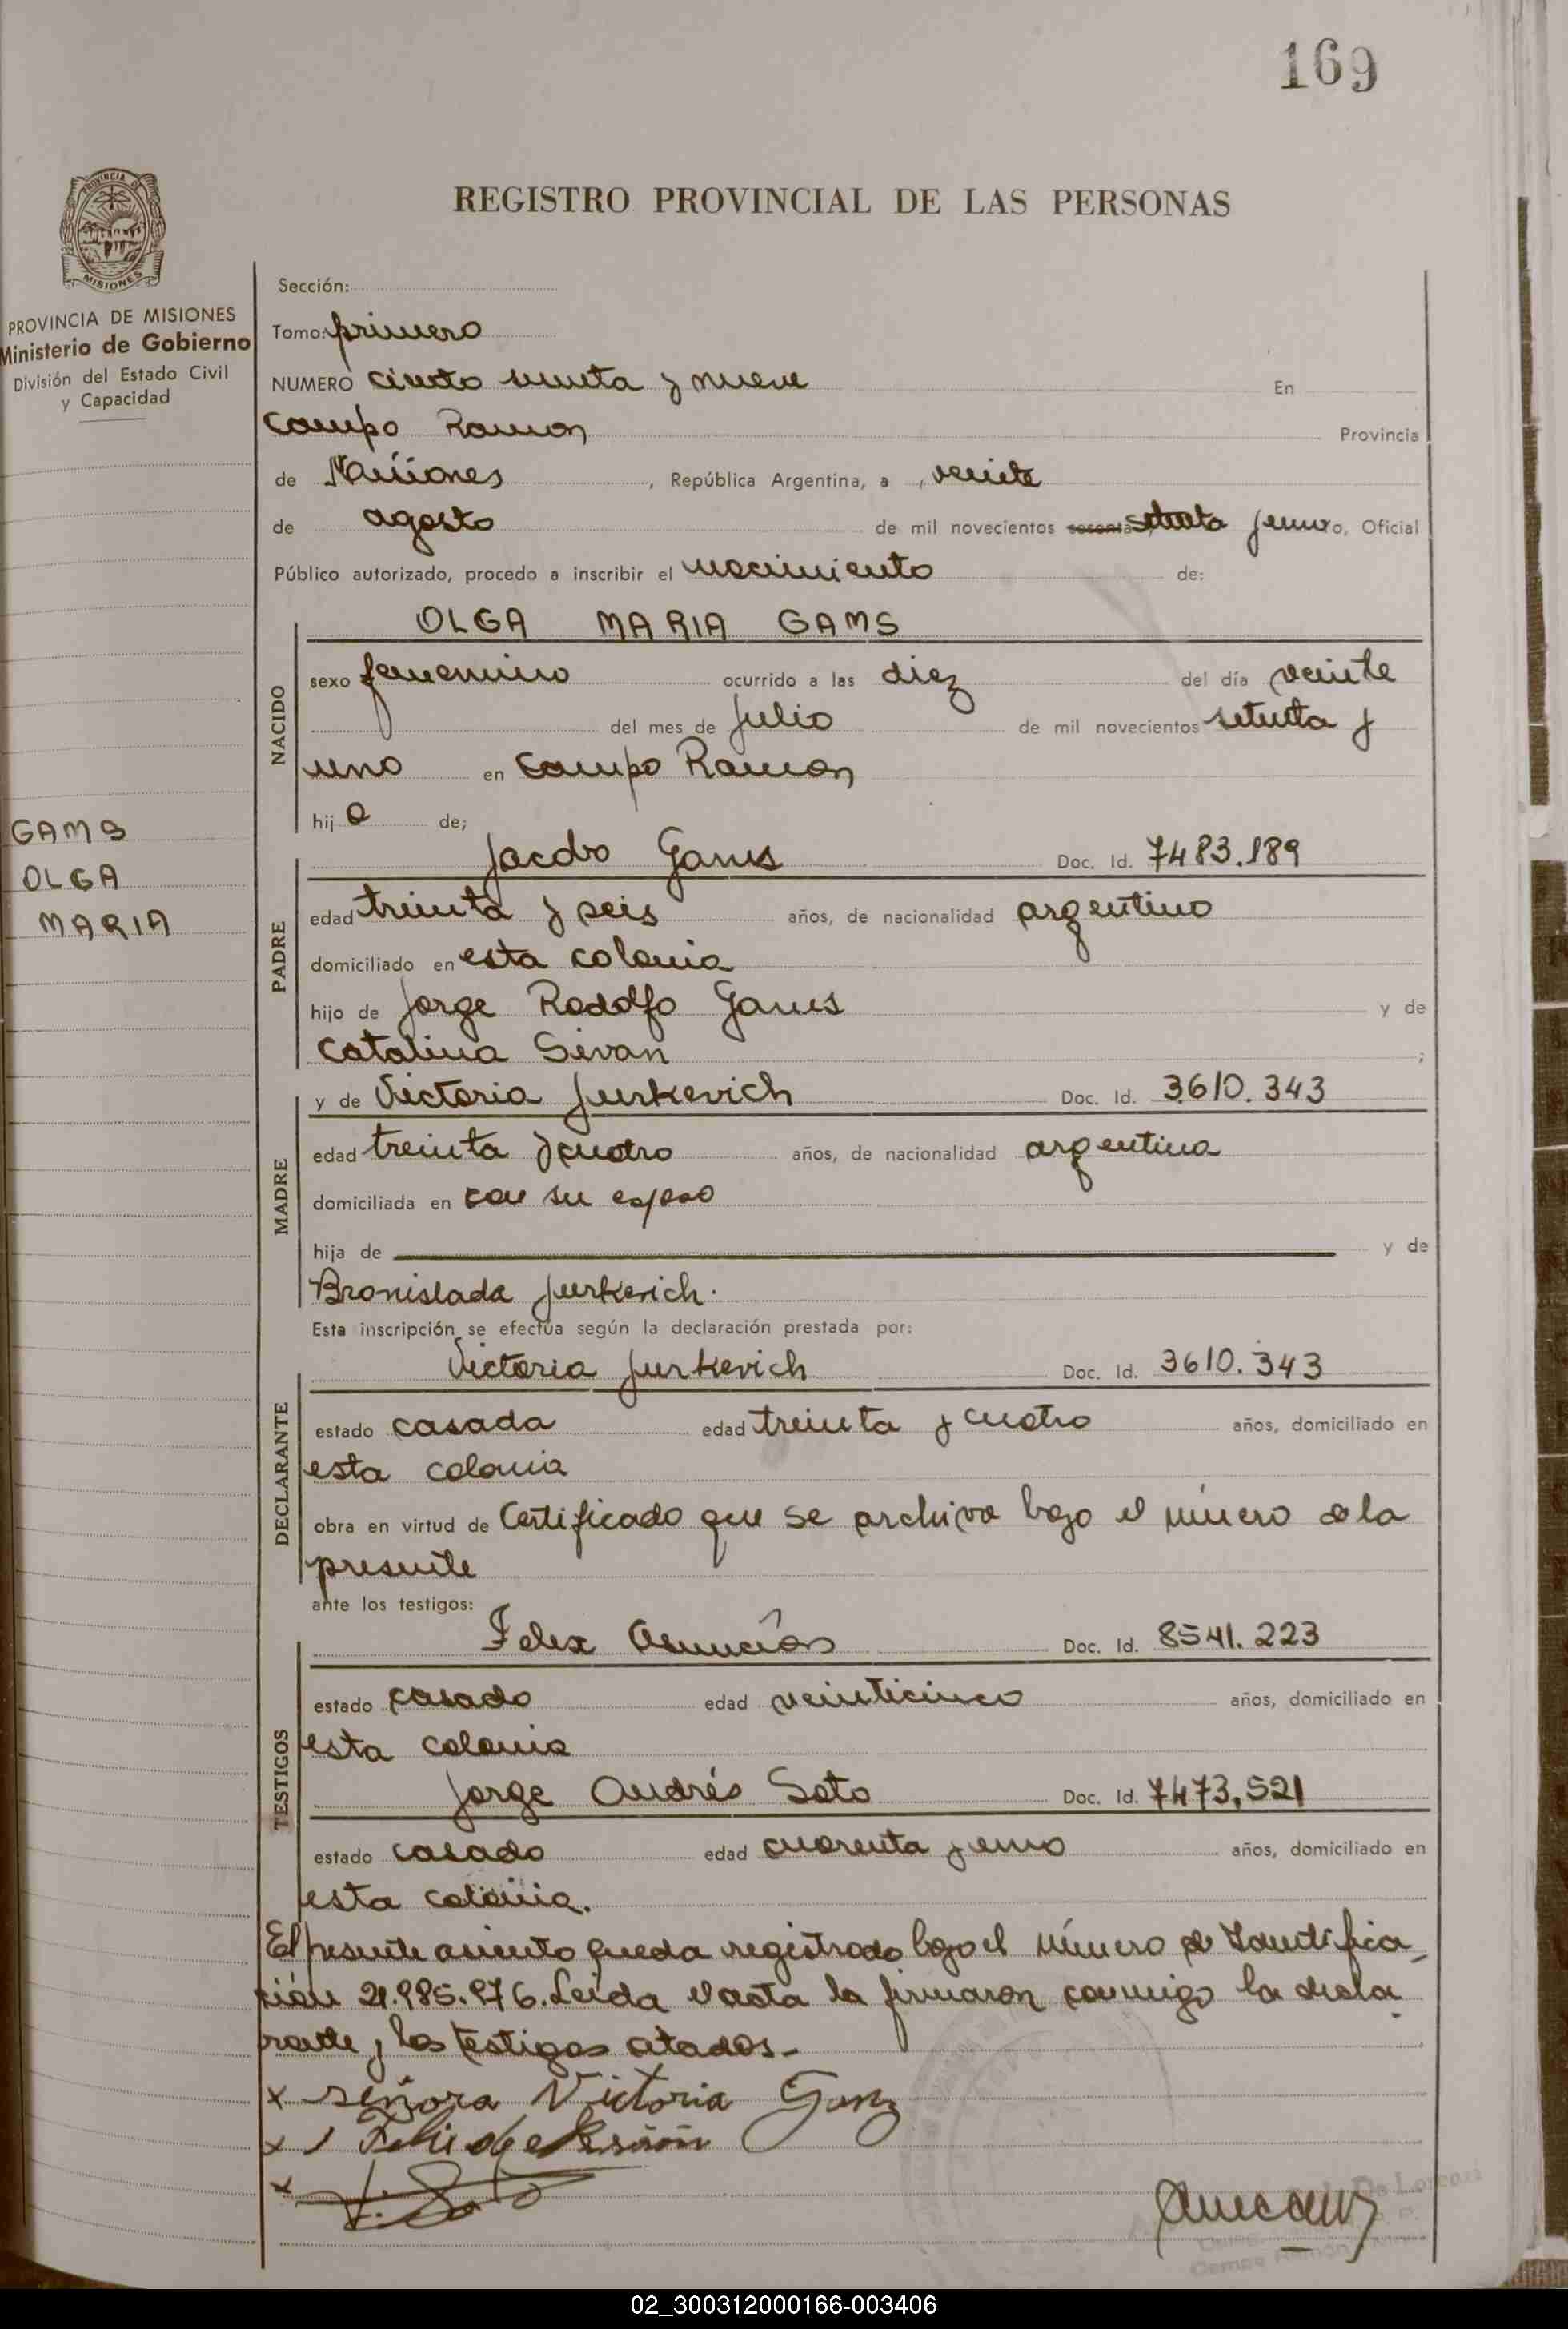 169
PROVINCIA DE
MISIONES
PROVINCIA DE MISIONES
Ministerio de Gobierno
División del Estado Civil
y Capacidad
GAMS
OLGA
MARIA
REGISTRO PROVINCIAL DE LAS PERSONAS
Sección:
Tomo: primero
NUMERO ciento sesenta y nueve En
Campo Ramon Provincia
de Misiones, República Argentina, a veinte
de agosto de mil novecientos sesenta setenta y uno, Oficial
Público autorizado, procedo a inscribir el nacimiento de:
NACIDO
OLGA MARIA GAMS
sexo femenino ocurrido a las diez del día veinte
del mes de Julio de mil novecientos setenta y
uno en Campo Ramon
hij a de;
PADRE
Jacobo Gams Doc. Id. 7483.189
edad treinta y seis años, de nacionalidad argentino
domiciliado en esta colonia
hijo de Jorge Rodolfo Gams y de
Catalina Sivan ;
MADRE
y de Victoria Jurkevich Doc. Id. 3610.343
edad treinta y cuatro años, de nacionalidad argentina
domiciliada en con su esposo
hija de y de
Bronislada Jurkevich.
Esta inscripción se efectúa según la declaración prestada por:
DECLARANTE
Victoria Jurkevich Doc. Id. 3610.343
estado casada edad treinta y cuatro años, domiciliado en
esta colonia
obra en virtud de Certificado que se archiva bajo el número de la
presente
ante los testigos:
TESTIGOS
Felix Doc. Id. 8541.223
estado casado edad veinticinco años, domiciliado en
esta colonia
Jorge Andrés Soto Doc. Id. 7473.521
estado casado edad cuarenta y uno años, domiciliado en
esta colonia.
El presente asiento queda registrado bajo el número de Identifica-
ción 21.985.976. Leída el acta la firmaron conmigo la decla-
rante y los testigos citados.-
x señora Victoria Ganz
x
x J. Soto
De Lorenzi
Campo Ramón
02_300312000166-003406